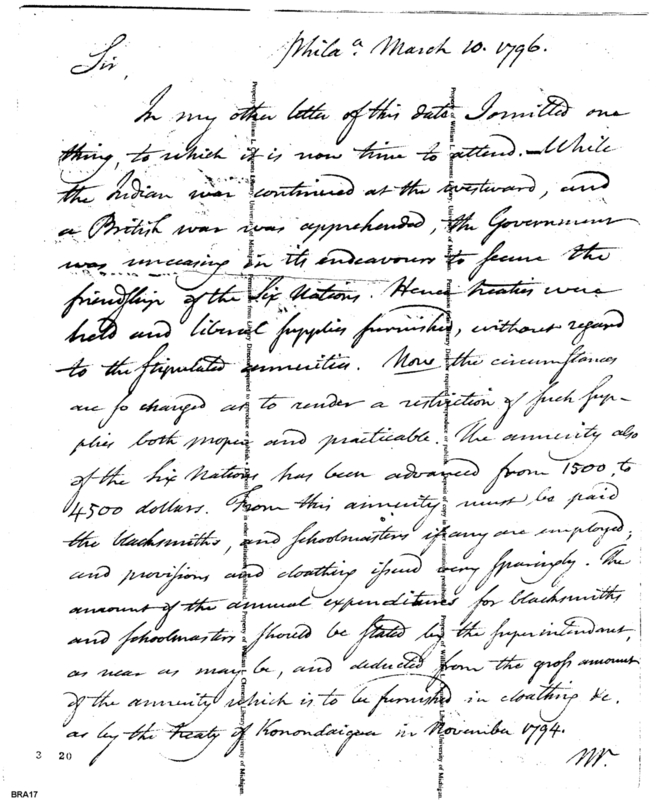 Phila.ª March 10. 1796.
Sir,
In my other letter of this date I omitted one
thing, to which it is now time to attend. While
the Indian war continued at the westward, and
a British war was apprehended, the Government
was unceasing in its endeavours to secure the
friendship of the Six Nations. Hence treaties were
held and liberal supplies furnished, without regard
to the stipulated annuities. Now the circumstances
are so changed as to render a restriction of such sup-
plies both proper and practicable. The annuity also
of the Six Nations has been advanced from 1500, to
4500 dollars. From this annuity must be paid
the blacksmiths, and schoolmasters if any are employed;
and provisions and cloathing issued very sparingly. The
amount of the annual expenditures for blacksmiths
and schoolmasters should be stated by the superintendant,
as near as may be, and deducted from the gross amount
of the annuity which is to be furnished in cloathing &c.
as by the treaty of Konondaigua in November 1794.
Mr.
3 20
BRA17